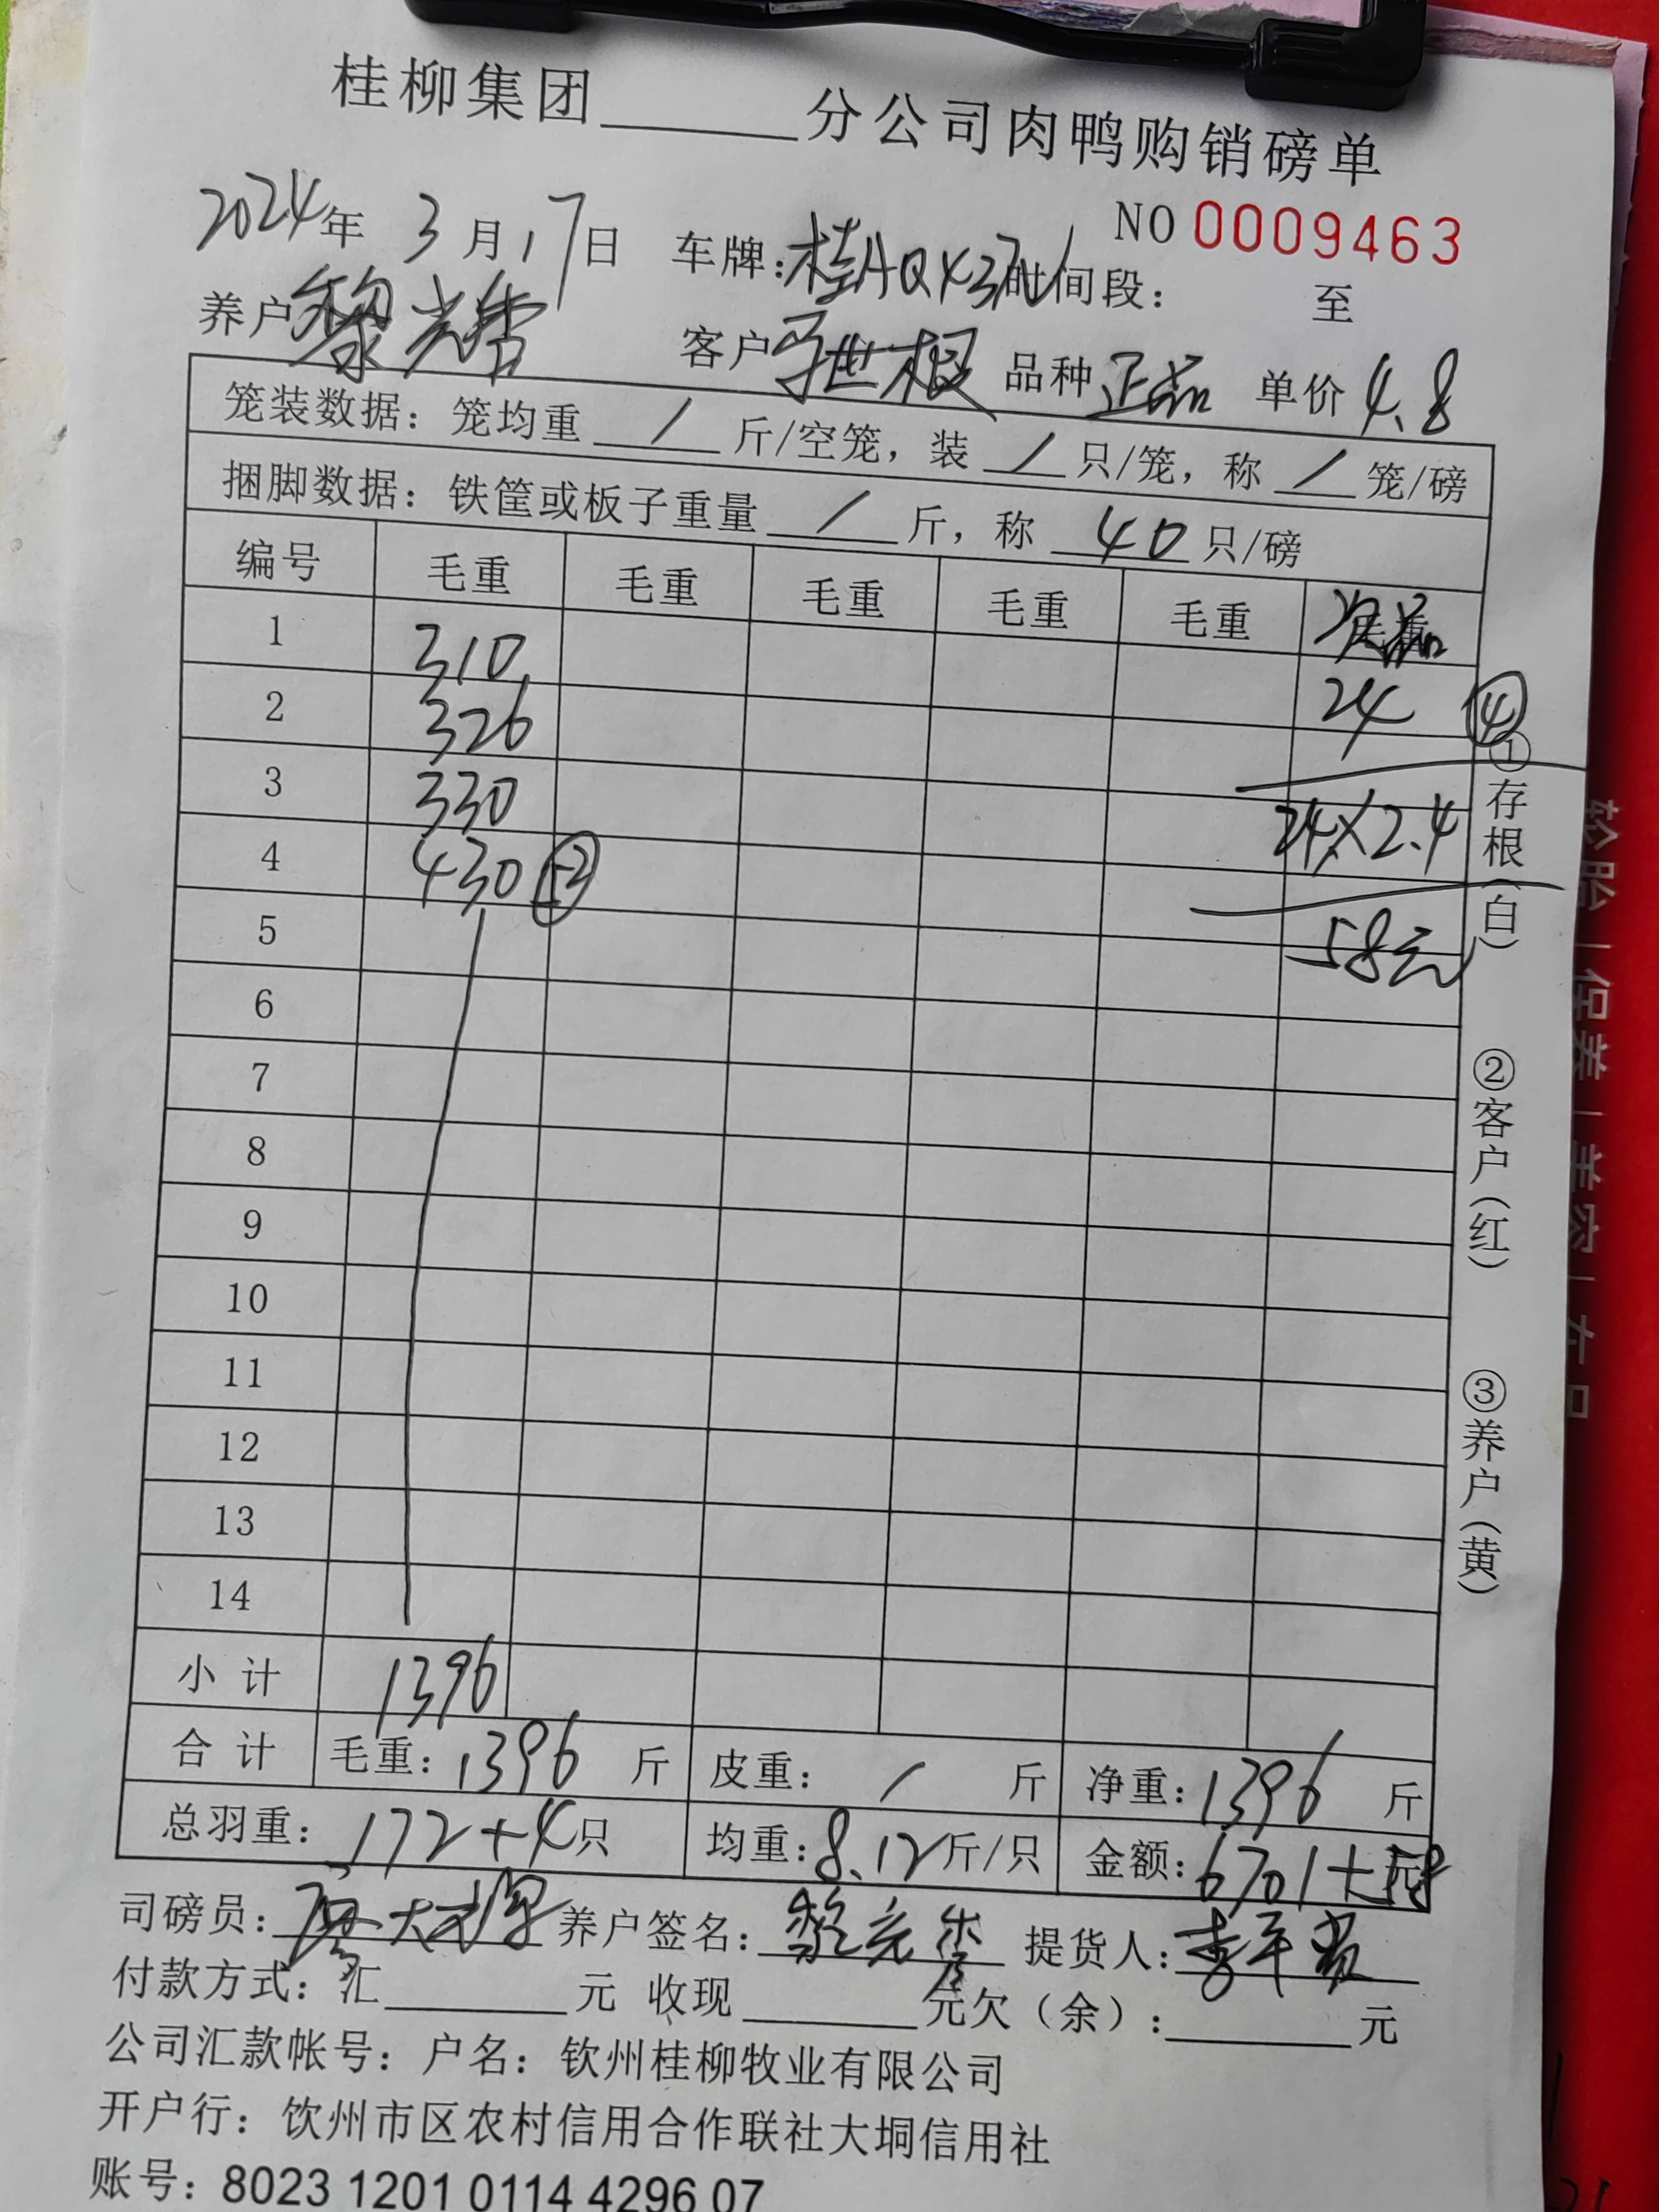 桂柳集团______分公司肉鸭购销磅单
NO 0009463
2024年 3月17日 车牌:桂AQX37 时间段: 至
养户黎光 客户 世根 品种 正品 单价 4.8
笼装数据: 笼均重 / 斤/空笼, 装 / 只/笼, 称 / 笼/磅
捆脚数据: 铁筐或板子重量 / 斤, 称 40 只/磅
编号 毛重 毛重 毛重 毛重 毛重 次品
1 310
2 326 24 ④
3 330 24×2.4
4 430 52
5 58元
6
7
8
9
10
11
12
13
14
小计 1396
合计 毛重: 1396 斤 皮重: / 斤 净重: 1396 斤
总羽重: 172+4只 均重: 8.12斤/只 金额: 6701+58
司磅员: 养户签名: 黎光 提货人: 李平
付款方式: 汇______元 收现______元欠(余):______元
公司汇款帐号: 户名: 钦州桂柳牧业有限公司
开户行: 饮州市区农村信用合作联社大垌信用社
账号: 8023 1201 0114 4296 07
①存根(白)
②客户(红)
③养户(黄)